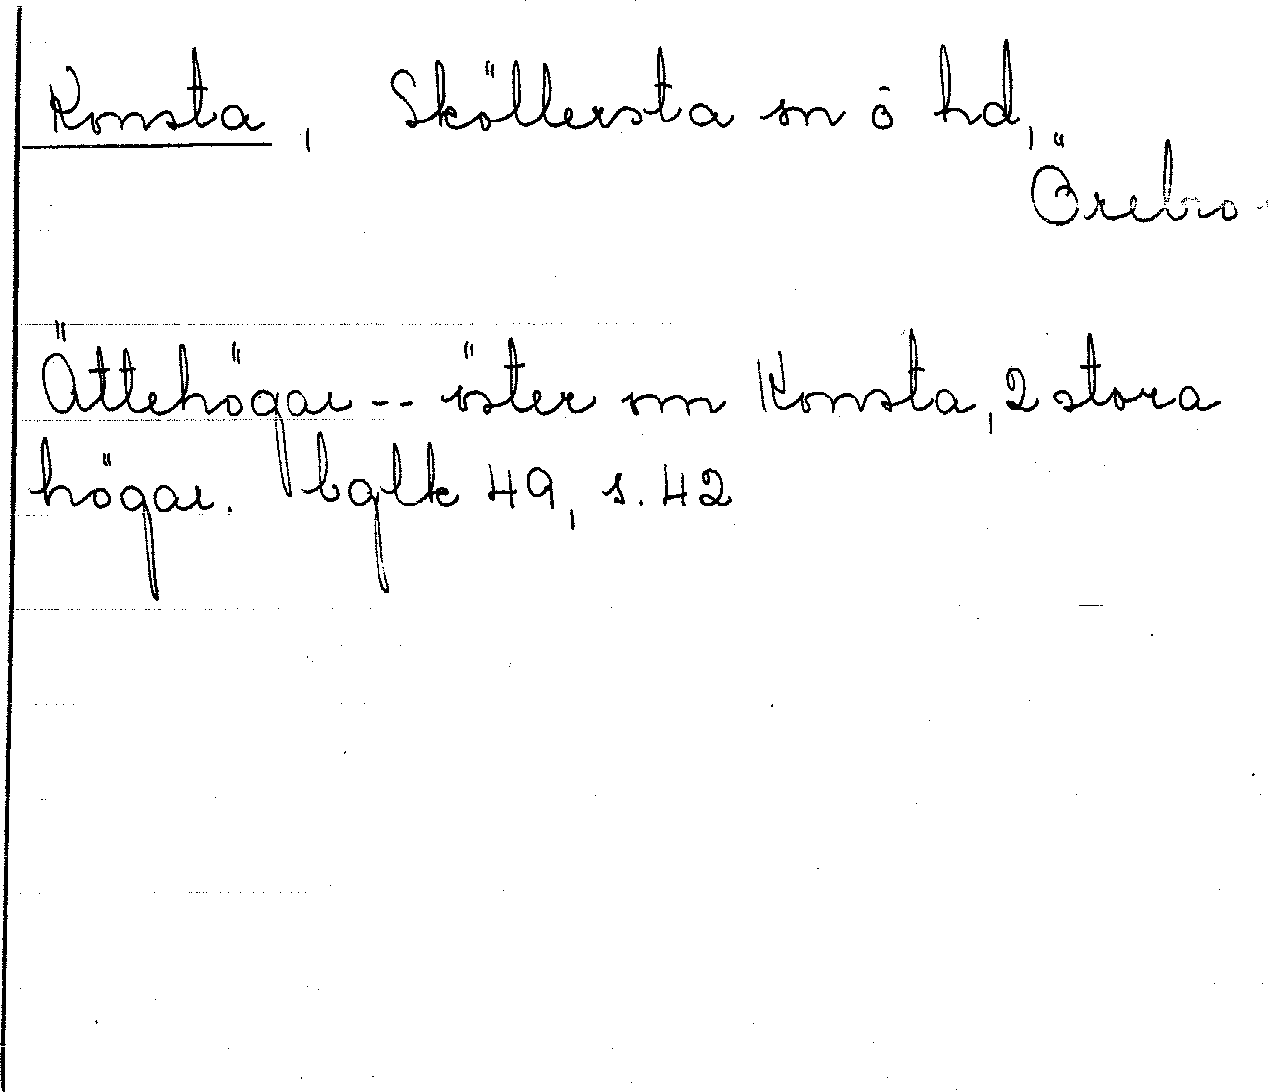 Konsta, Sköllersta sn o hd,
Örebro
Ättehögar -- öster om Konsta, 2 stora
högar. bglk 49, s. 42